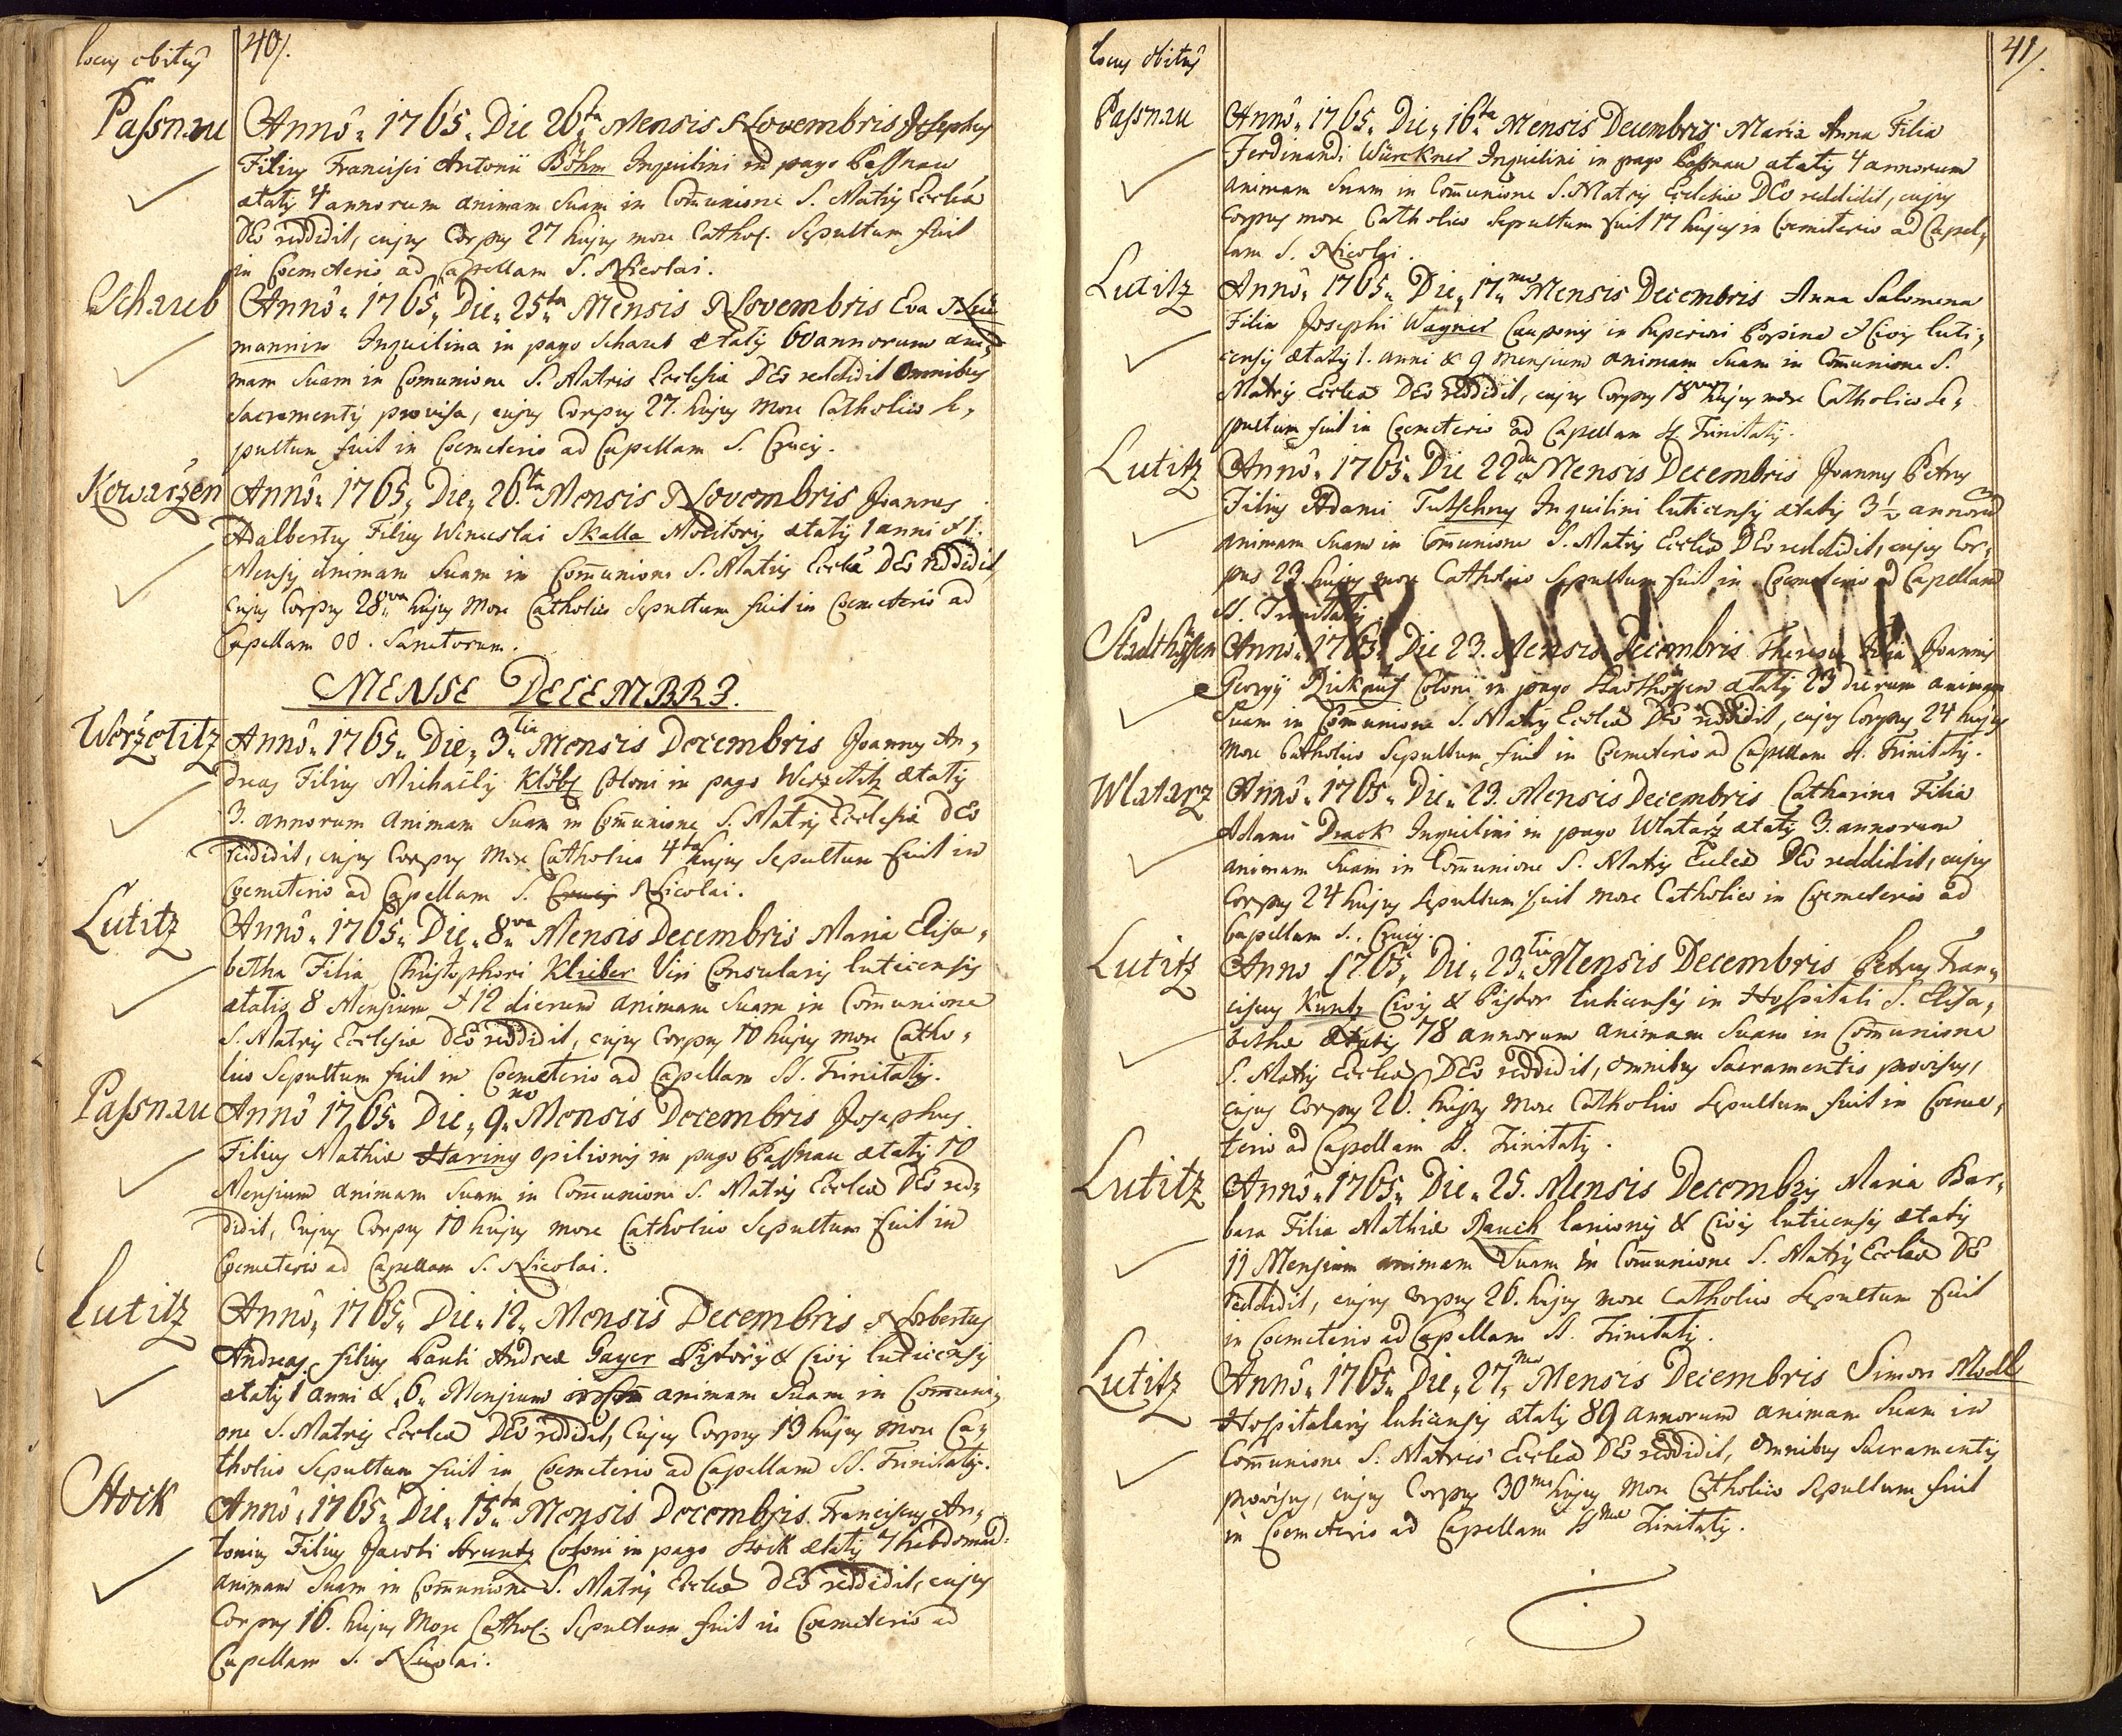 locus obitus 40/.
Passnau Annô 1765. Die 26ta Mensis Novembris Josephus
Filius Francisci Antonii Böhm Inquilini in pago Passnau
ætatis 4 annorum animam Suam in Com̄unione S. Matris Eccleæ
DEo reddidit, cujus Corpus 27 hujus more Cathol. Sepultum fuit
in Coemeterio ad Capellam S. Nicolai.
Schaub Annô 1765. Die 25ta Mensis Novembris Eva
mannin Inquilina in pago Schaub ætatis 60 annorum ani=
mam Suam in Comunione S. Matris Ecclesiæ DEo reddidit Omnibus
Sacramentis provisa, cujus Corpus 27. hujus More Catholico se=
pultum fuit in Coemeterio ad Capellam S. Crucis.
Kowaržen Annô 1765. Die 26.ta Mensis Novembris Joannes
Adalbertus Filius Wenceslai Skalla Molitoris ætatis 1 anni & 1.
Mensis animam Suam in Com̄unione S. Matris Eccleæ DEo reddidit,
cujus Corpus 28va hujus More Catholico Sepultum fuit in Coemeterio ad
Capellam OO. Sanctorum.
MENSE DECEMBRJ.
Woržetitz Annô 1765. Die 3.tia Mensis Decembris Joannes An=
dreas Filius Michaëlis Klöbl Coloni in pago Worzetitz ætatis
3. annorum Animam Suam in Com̄unione S. Matris Ecclesiæ DEo
reddidit, cujus Corpus More Catholico 4ta hujus Sepultum fuit in
Coemeterio ad Capellam S. Crucis Nicolai.
Lutitz Annô 1765. Die 8va Mensis Decembris Maria Elisa=
betha Filia Christophori Klieber Viri Consularis luticensis
ætatis 8 Mensium & 12 dierum animam Suam in Com̄unione
S. Matris Ecclesiæ DEo reddidit, cujus Corpus 10 hujus more Catho=
lico Sepultum fuit in Coemeterio ad Capellam SS. Trinitatis.
Passnau Annô 1765. Die 9na Mensis Decembris Josephus
Filius Mathiæ Haring Opilionis in pago Passnau ætatis 10
Mensium animam Suam in Com̄unione S. Matris Eccleæ DEo red=
didit, cujus Corpus 10 hujus more Catholico Sepultum fuit in
Coemeterio ad Capellam S. Nicolai.
Lutitz Annô 1765. Die 12. Mensis Decembris Norbertus
Andreas filius Pauli Andreæ Gayer Pistoris & Civis luticensis
ætatis 1 anni & 6. Mensium animam Suam in Com̄uni=
one S. Matris Eccleæ DEo reddidit, Cujus Corpus 13 hujus More Ca=
tholico Sepultum fuit in Coemeterio ad Capellam SS. Trinitatis.
Stock Annô 1765. Die 15ta Mensis Decembris. Franciscus An=
tonius Filius Jacobi Struntz Coloni in pago Stock ætatis 7 hebdomad:
animam Suam in Com̄unione S. Matris Eccleæ DEo reddidit, cujus
Corpus 16. hujus More Cathol: Sepultum fuit in Coemeterio ad
Capellam S. Nicolai.
locus obitus 41/.
Passnau Annô 1765. Die 16ta Mensis Decembris Maria Anna Filia
Ferdinandi Würckner Inquilini in pago Passnau ætatis 4 annorum
animam Suam in Com̄unione S. Matris Ecclesiæ DEo reddidit, cujus
Corpus more Catholico Sepultum fuit 17 hujus in Coemeterio ad Capel=
lam S. Nicolai.
Lutitz Annô 1765. Die 17ma Mensis Decembris Anna Salomena
Filia Josephi Wagner Cauponis in superiori Popina & Civis luti=
censis ætatis 1. anni & 9 mensium animam Suam in Com̄unione S.
Matris Eccleæ DEo reddidit, cujus Corpus 18va hujus more Catholico Se=
pultum fuit in Coemeterio ad Capellam SS. Trinitatis.
Lutitz Annô 1765. Die 22da Mensis Decembris Joannes Petrus
Filius Adami Tutschny Inquilini luticensis ætatis 3½ annorū
animam Suam in Com̄unione S. Matris Eccleæ DEo reddidit, cujus Cor=
pus 23. hujus more Catholico Sepultum fuit in Coemeterio ad Capellam
SS. Trinitatis.
Stadthöffen Annô 1765. Die 23. Mensis Decembris Theresia Filia Joannis
Georgÿ Coloni in pago Stadthöffen ætatis 23 dierum animam
Suam in Com̄unione S. Matris Eccleæ DEo reddidit, cujus Corpus 24 hujus
More Catholico Sepultum fuit in Coemeterio ad Capellam SS. Trinitatis.
Wlatarz Annô 1765. Die 23. Mensis Decembris Catharina Filia
Adami Drack Inquilini in pago Wlatarz ætatis 3. annorum
animam Suam in Com̄unione S. Matris Eccleæ DEo reddidit, cujus
Corpus 24 hujus Sepultum fuit More Catholico in Coemeterio ad
Capellam S. Crucis.
Lutitz Anno 1765. Die 23tia Mensis Decembris Petrus Fran=
ciscus Kuntz Civis & Pistor luticensis in Hospitali S. Elisa=
bethæ Ætatis 78 annorum animam Suam in Com̄unione
S. Matris Eccleæ DEo reddidit, omnibus Sacramentis provisus,
cujus Corpus 26. hujus More Catholico Sepultum fuit in Coeme=
terio ad Capellam SS. Trinitatis.
Lutitz Annô 1765. Die 25. Mensis Decembris Maria Bar=
bara Filia Mathiæ Rauch lanionis & Civis luticensis ætatis
11 Mensium animam Suam in Com̄unione S. Matris Eccleæ DEo
reddidit, cujus Corpus 26. hujus more Catholico Sepultum fuit
in Coemeterio ad Capellam SS. Trinitatis.
Lutitz Annô 1765. Die 27.ma Mensis Decembris Simon Modl
Hospitalaris luticensis ætatis 89 annorum animam Suam in
Com̄unione S. Matris Eccleæ DEo reddidit, Omnibus Sacramentis
provisus, cujus Corpus 30ma hujus More Catholico Sepultum fuit
in Coemeterio ad Capellam SSmæ Trinitatis.